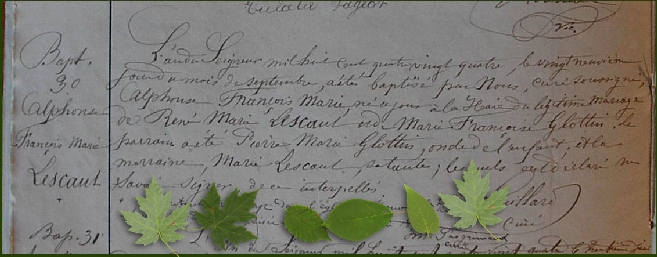 Bapt.
30
Alphonse
François Marie
Lescaut
L'an du Seigneur mil huit cent quatre vingt quatre, le vingt neuvième
jour du mois de septembre, a été baptisé par Nous, curé soussigné,
Alphonse François Marie, né a jour à la Haie du légitime mariage
de René Marie Lescaut et de Marie Françoise Glottin. le
parrain a été Pierre Marie Glottin, oncle de l'enfant, et la
marraine, Marie Lescaut, sa tante; lesquels ont déclaré ne
Savoir Signer de ce interpellés
Curé
Bap. 31
L'an du Seigneur mil huit cent quatre vingt quatre le